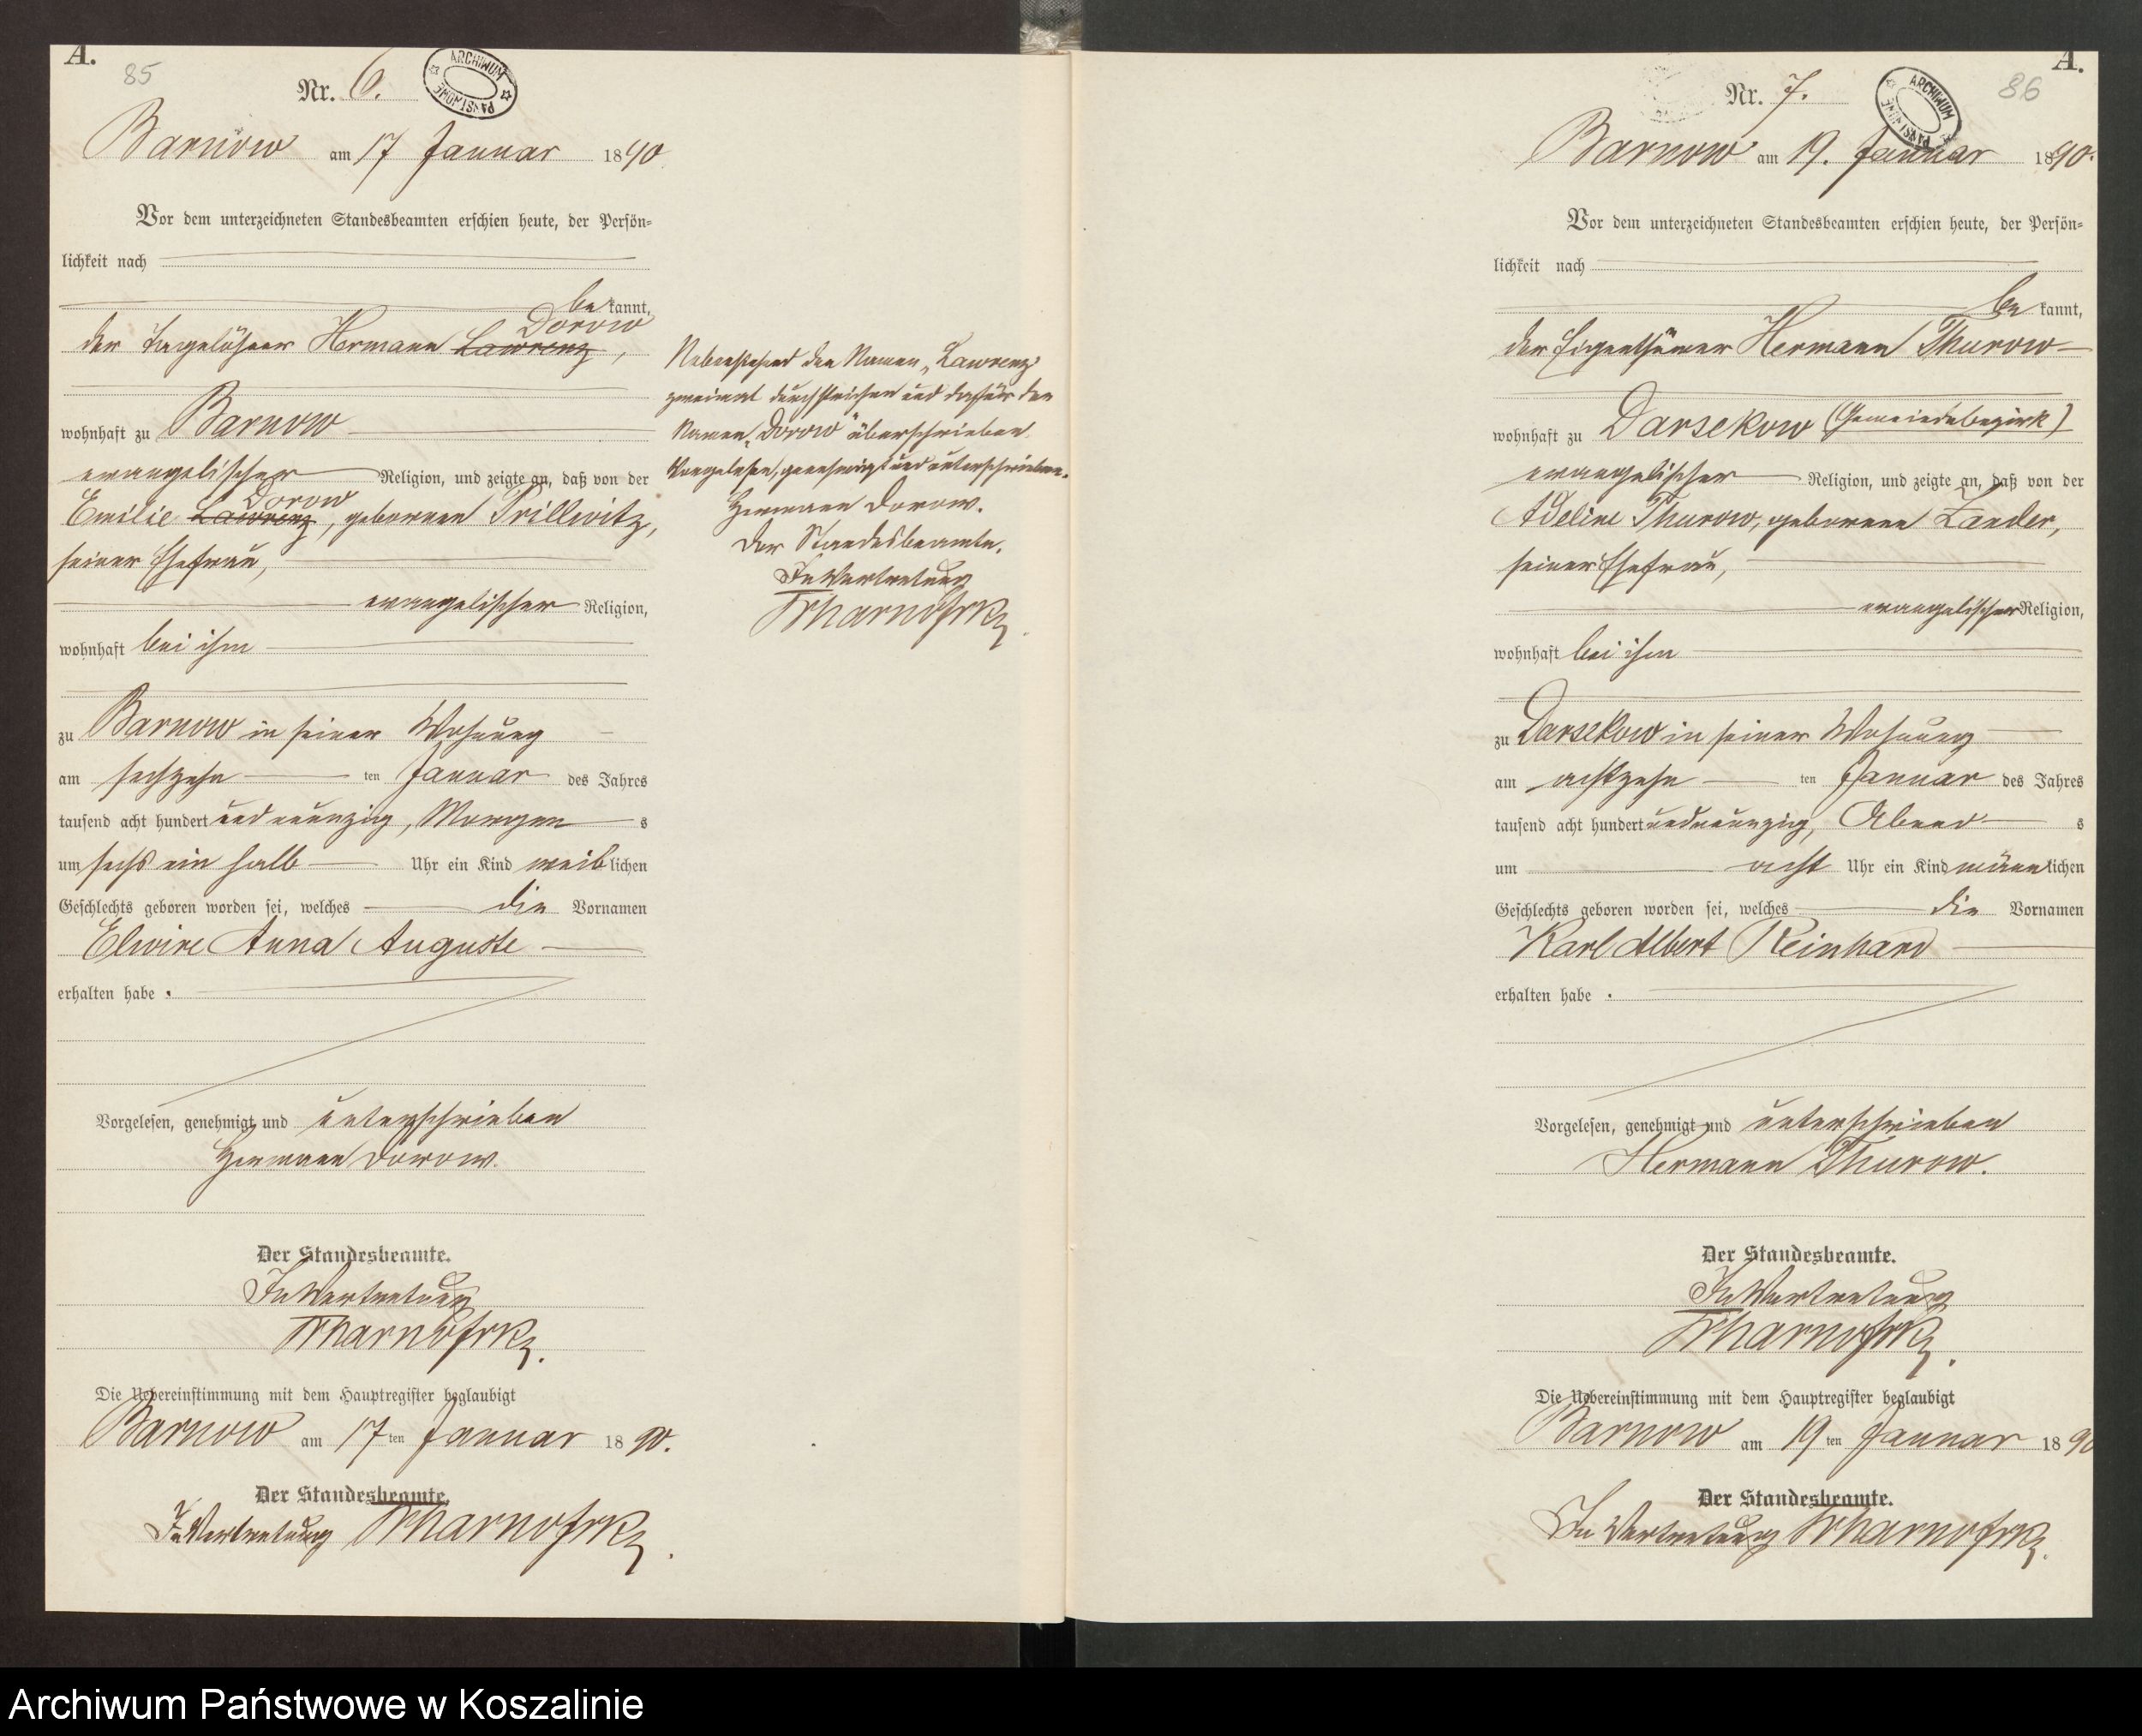 A.
85
Nr. 6.
ARCHIWUM PAŃSTWOWE
Barnow am 17 Januar 1890
Vor dem unterzeichneten Standesbeamten erschien heute, der Persön-
lichkeit nach
be kannt,
Dorow
der Tagelöhner Hermann Lawrenz,
wohnhaft zu Barnow
evangelischer Religion, und zeigte an, daß von der
Dorow
Emilie Lawrenz, geborenen Prillwitz,
seiner Ehefrau,
evangelischer Religion,
wohnhaft bei ihm
zu Barnow in seiner Wohnung
am sechzehn ten Januar des Jahres
tausend acht hundert und neunzig, Morgen s
um sechs ein halb Uhr ein Kind weiblichen
Geschlechts geboren worden sei, welches die Vornamen
Elwire Anna Auguste
erhalten habe.
Vorgelesen, genehmigt und unterschrieben
Hermann Dorow.
Der Standesbeamte.
In Vertretung
Die Uebereinstimmung mit dem Hauptregister beglaubigt
Barnow am 17 ten Januar 1890.
Der Standesbeamte.
In Vertretung
Nebenstehend den Namen „Lawrenz
zweimal durchstrichen und dafür den
Namen „Dorow" überschrieben.
Vorgelesen, genehmigt und unterschrieben.
Hermann Dorow.
Der Standesbeamte.
In Vertretung
A.
86
Nr. 7.
ARCHIWUM PAŃSTWOWE
Barnow am 19. Januar 1890.
Vor dem unterzeichneten Standesbeamten erschien heute, der Persön-
lichkeit nach
be kannt,
der Eigenthümer Hermann Thurow
wohnhaft zu Darsekow (Gemeindebezirk)
evangelischer Religion, und zeigte an, daß von der
Adeline Thurow, geborenen Zander,
seiner Ehefrau,
evangelischer Religion,
wohnhaft bei ihm
zu Darsekow in seiner Wohnung
am achtzehn ten Januar des Jahres
tausend acht hundert und neunzig, Abend s
um acht Uhr ein Kind männlichen
Geschlechts geboren worden sei, welches die Vornamen
Karl Albert Reinhard
erhalten habe.
Vorgelesen, genehmigt und unterschrieben
Hermann Thurow.
Der Standesbeamte.
In Vertretung
Die Uebereinstimmung mit dem Hauptregister beglaubigt
Barnow am 19 ten Januar 1890
Der Standesbeamte.
In Vertretung
Archiwum Państwowe w Koszalinie